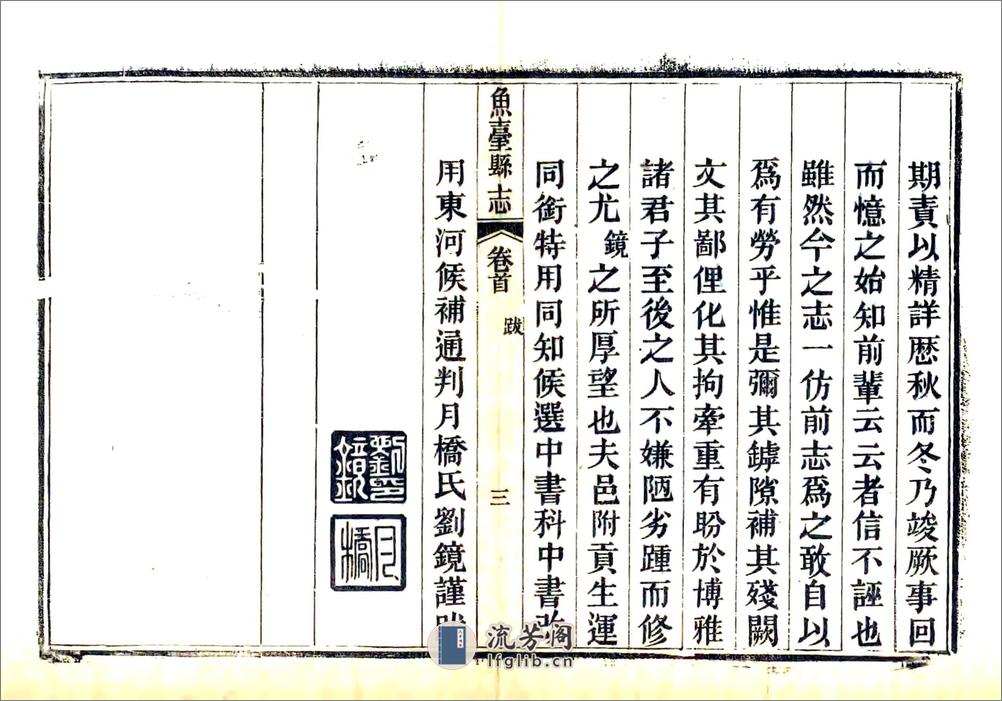 期責以精詳歷秋而冬乃竣厥事回
而憶之始知前輩云云者信不誣也
雖然今之志一仿前志爲之敢自以
爲有勞乎惟是彌其罅隙補其殘闕
文其鄙俚化其拘牽重有盼於博雅
諸君子至後之人不嫌陋劣踵而修
之尤鏡之所厚望也夫邑附貢生運
同銜特用同知候選中書科中書改
魚臺縣志
卷首
跋
三
用東河候補通判月橋氏劉鏡謹跋
劉鏡
月橋
流芳阁
lfglib.cn